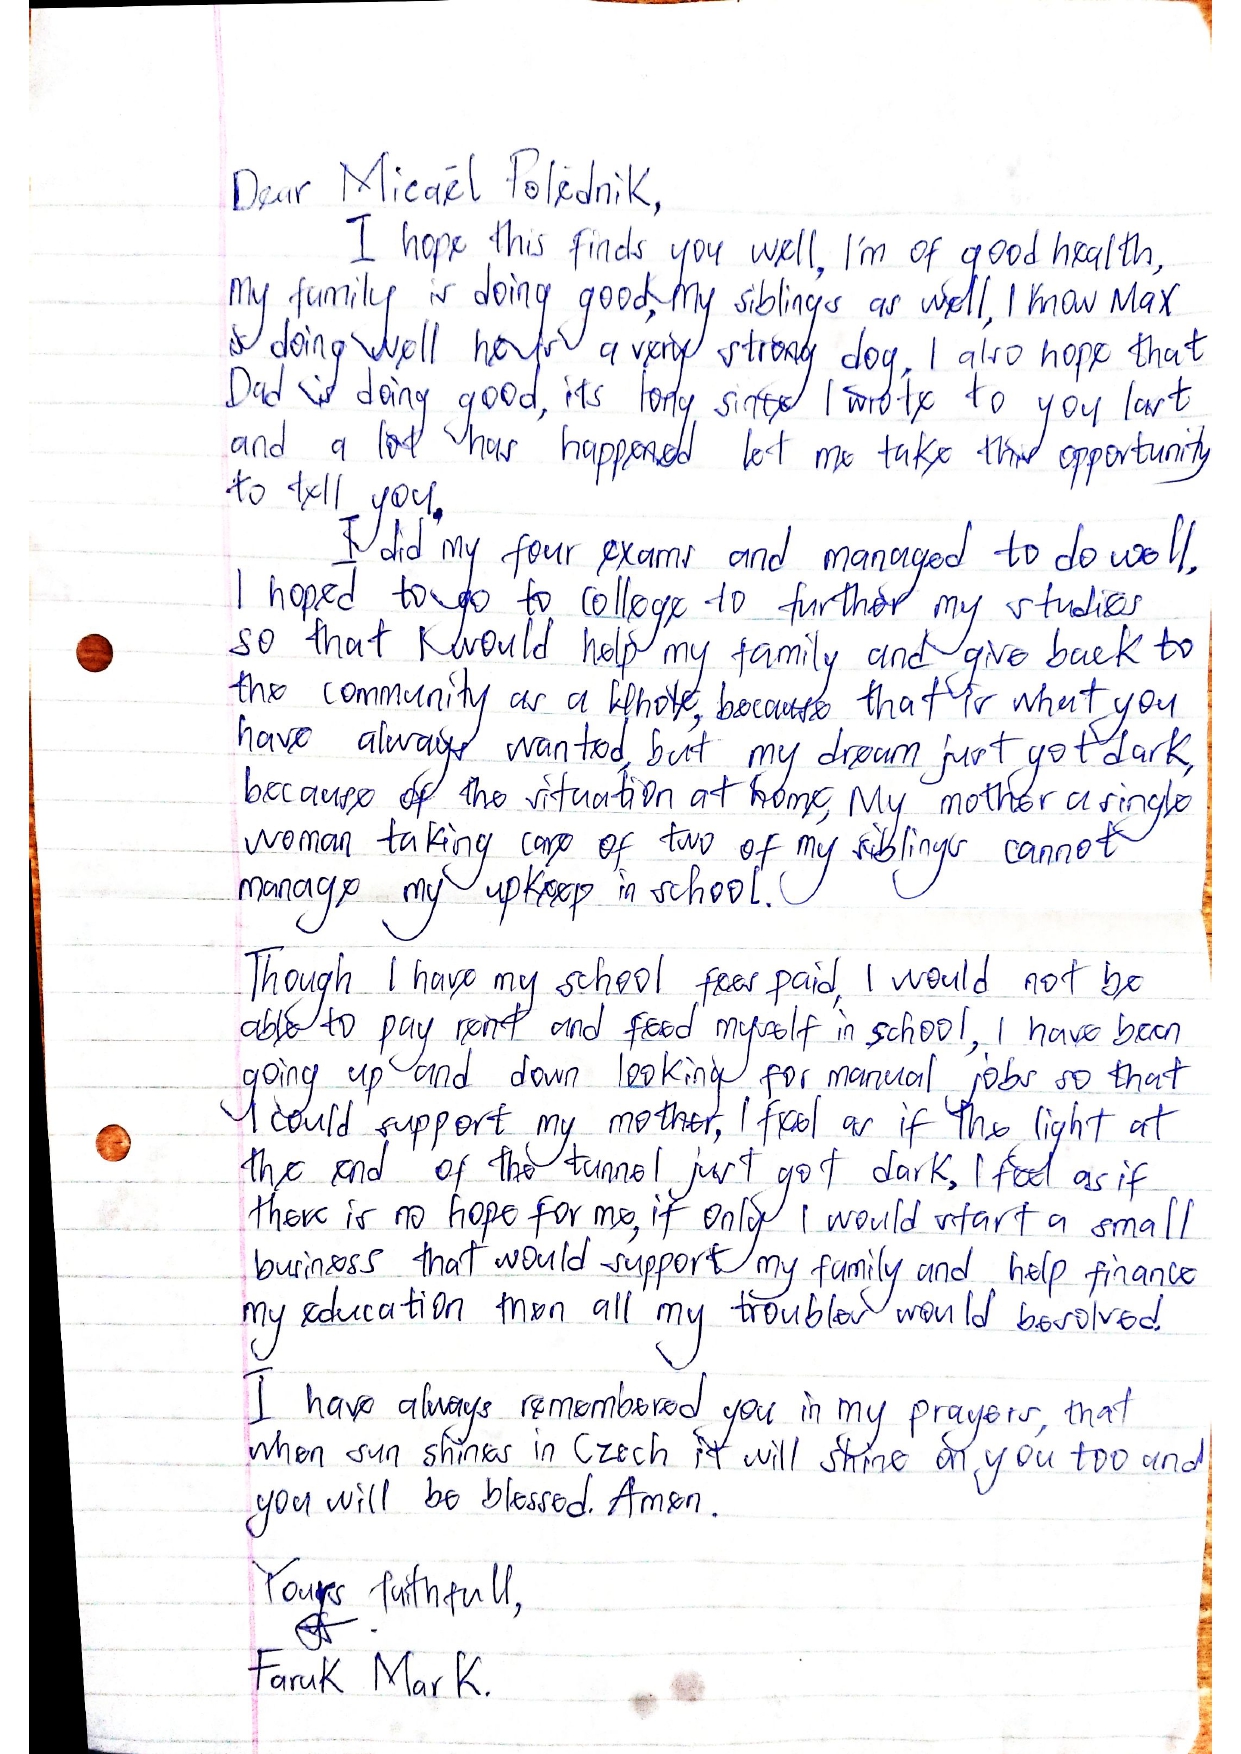 Dear Micaël Polednik,
I hope this finds you well, I'm of good health,
my family is doing good, my siblings as well, I know Max
is doing well he's a very strong dog, I also hope that
Dad is doing good, its long since I wrote to you last
and a lot has happened let me take this opportunity
to tell you.
I did my four exams and managed to do well,
I hoped to go to college to further my studies
so that I would help my family and give back to
the community as a whole, because that is what you
have always wanted, but my dream just got dark,
because of the situation at home, My mother a single
woman taking care of two of my siblings cannot
manage my upkeep in school.
Though I have my school fees paid, I would not be
able to pay rent and feed myself in school, I have been
going up and down looking for manual jobs so that
I could support my mother, I feel as if the light at
the end of the tunnel just got dark, I feel as if
there is no hope for me, if only I would start a small
business that would support my family and help finance
my education then all my troubles would be solved.
I have always remembered you in my prayers, that
when sun shines in Czech it will shine on you too and
you will be blessed. Amen.
Yours faithfull,
Faruk Mark.